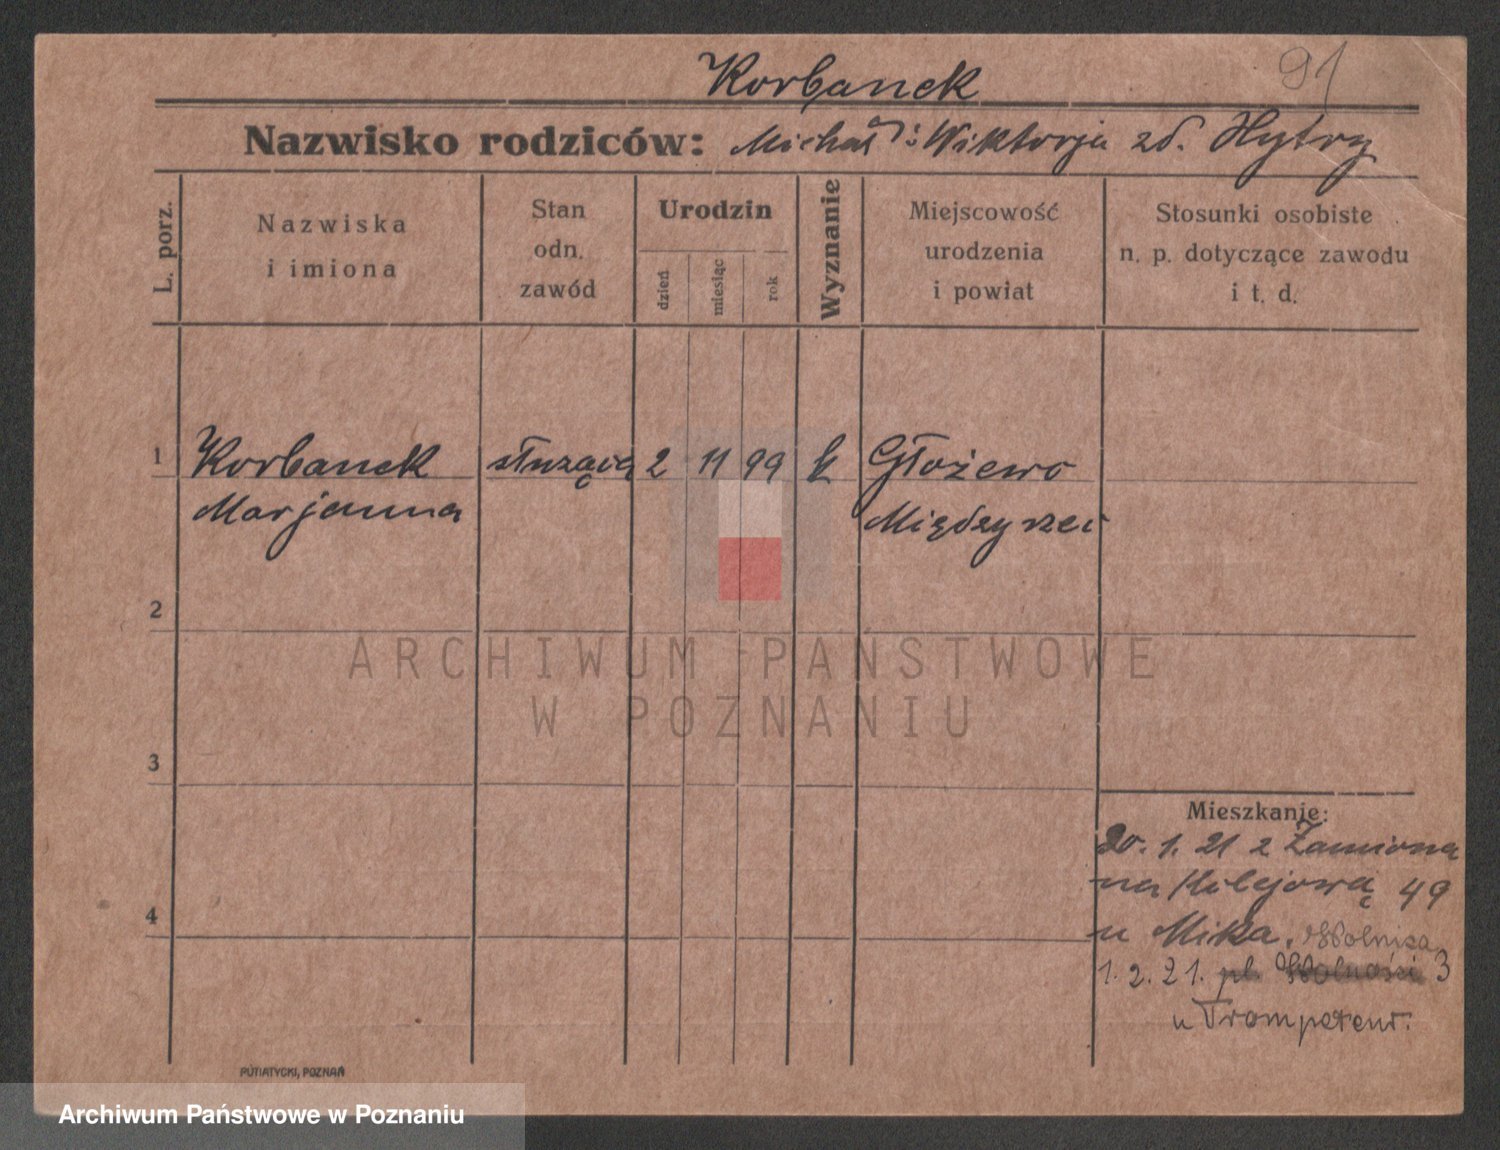 Korbanek 91
Nazwisko rodziców: Michał i Wiktorja zd. Hytry
L. porz.
Nazwiska
i imiona
Stan
odn.
zawód
Urodzin
dzień
miesiąc
rok
Wyznanie
Miejscowość
urodzenia
i powiat
Stosunki osobiste
n. p. dotyczące zawodu
i t. d.
1 Korbanek służąca 2 11 99 k Głożewo
Marjanna Międzyrzec
2
ARCHIWUM PAŃSTWOWE
W POZNANIU
3
Mieszkanie:
20. 1. 21 z
na Kolejową 49
4
u Mika. Wolnica
1. 2. 21. pl. Wolności 3
u
PUTIATYCKI, POZNAŃ
Archiwum Państwowe w Poznaniu